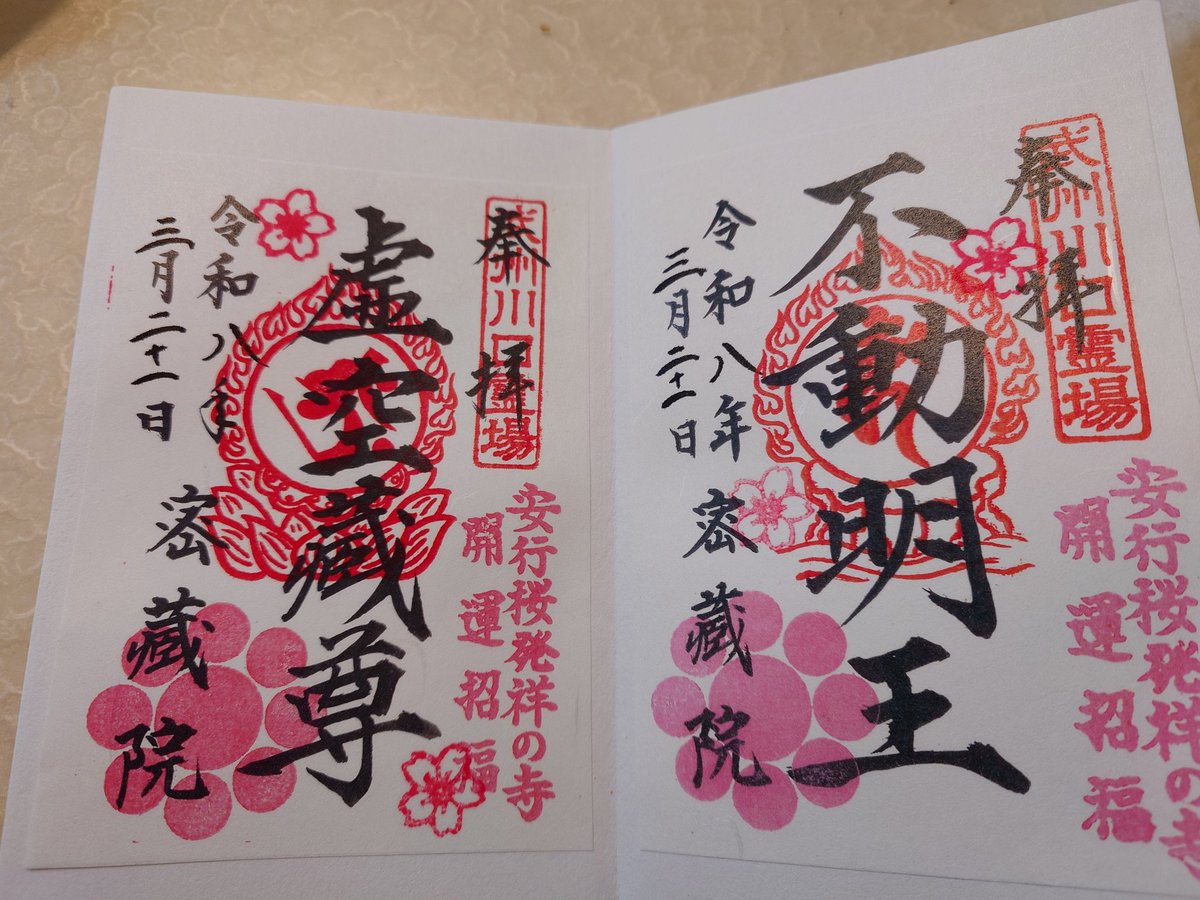 奉拝
武州川口霊場
安行桜発祥の寺
開運招福
不動明王
令和八年
三月二十一日
密蔵院
奉拝
武州川口霊場
安行桜発祥の寺
開運招福
虚空蔵尊
令和八年
三月二十一日
密蔵院